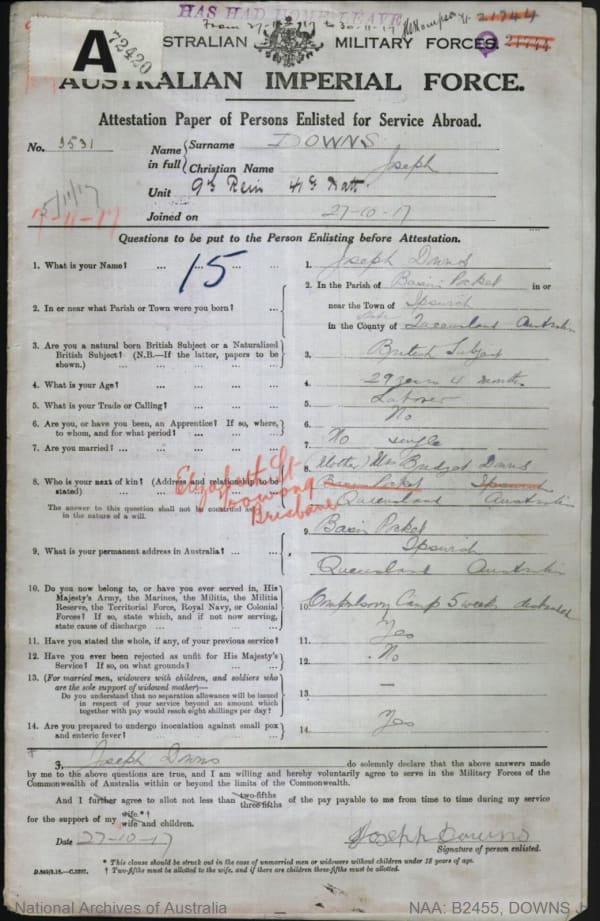 HAS HAD HOME LEAVE
From to 30-11-17
21744
A
72420
AUSTRALIAN MILITARY FORCES.
21744
AUSTRALIAN IMPERIAL FORCE.
Attestation Paper of Persons Enlisted for Service Abroad.
No. 3531
Name in full
Surname DOWNS
Christian Name Joseph
Unit 9th Rein 41st Batt.
5/11/17
7-11-17
Joined on 27-10-17
Questions to be put to the Person Enlisting before Attestation.
15
1. What is your Name? ... ... ... ...
1. Joseph Downs
2. In or near what Parish or Town were you born? ...
2. In the Parish of Basin Pocket in or
near the Town of Ipswich
in the County of State Queensland Australia
3. Are you a natural born British Subject or a Naturalized
British Subject? (N.B.—If the latter, papers to be
shown.) ... ... ... ...
3. British Subject
4. What is your Age? ... ... ... ...
4. 29 years 4 months
5. What is your Trade or Calling? ... ... ...
5. Laborer
6. Are you, or have you been, an Apprentice? If so, where,
to whom, and for what period? ... ... ...
6. No
7. Are you married? ... ... ... ...
7. No single
8. Who is your next of kin? (Address and relationship to be
stated) ... ...
The answer to this question shall not be construed as
in the nature of a will.
8. (Mother) Mrs Bridget Downs
Basin Pocket Ipswich
Queensland Australia
Elizabeth St
Toowong
Brisbane
9. What is your permanent address in Australia? ... ...
9. Basin Pocket
Ipswich
Queensland Australia
10. Do you now belong to, or have you ever served in, His
Majesty's Army, the Marines, the Militia, the Militia
Reserve, the Territorial Force, Royal Navy, or Colonial
Forces? If so, state which, and if not now serving,
state cause of discharge ... ... ...
10. Compulsory Camp 5 weeks
11. Have you stated the whole, if any, of your previous service?
11. Yes
12. Have you ever been rejected as unfit for His Majesty's
Service? If so, on what grounds? ... ...
12. No
13. (For married men, widowers with children, and soldiers who
are the sole support of widowed mother)—
Do you understand that no separation allowance will be issued
in respect of your service beyond an amount which
together with pay would reach eight shillings per day?
13. —
14. Are you prepared to undergo inoculation against small pox
and enteric fever? ... ... ... ...
14. Yes
I, Joseph Downs do solemnly declare that the above answers made
by me to the above questions are true, and I am willing and hereby voluntarily agree to serve in the Military Forces of the
Commonwealth of Australia within or beyond the limits of the Commonwealth.
And I further agree to allot not less than two-fifths three-fifths of the pay payable to me from time to time during my service
for the support of my wife.*† wife and children.
Date 27-10-17
Joseph Downs
Signature of person enlisted.
* This clause should be struck out in the case of unmarried men or widowers without children under 18 years of age.
† Two-fifths must be allotted to the wife, and if there are children three-fifths must be allotted.
National Archives of Australia
NAA: B2455, DOWNS J